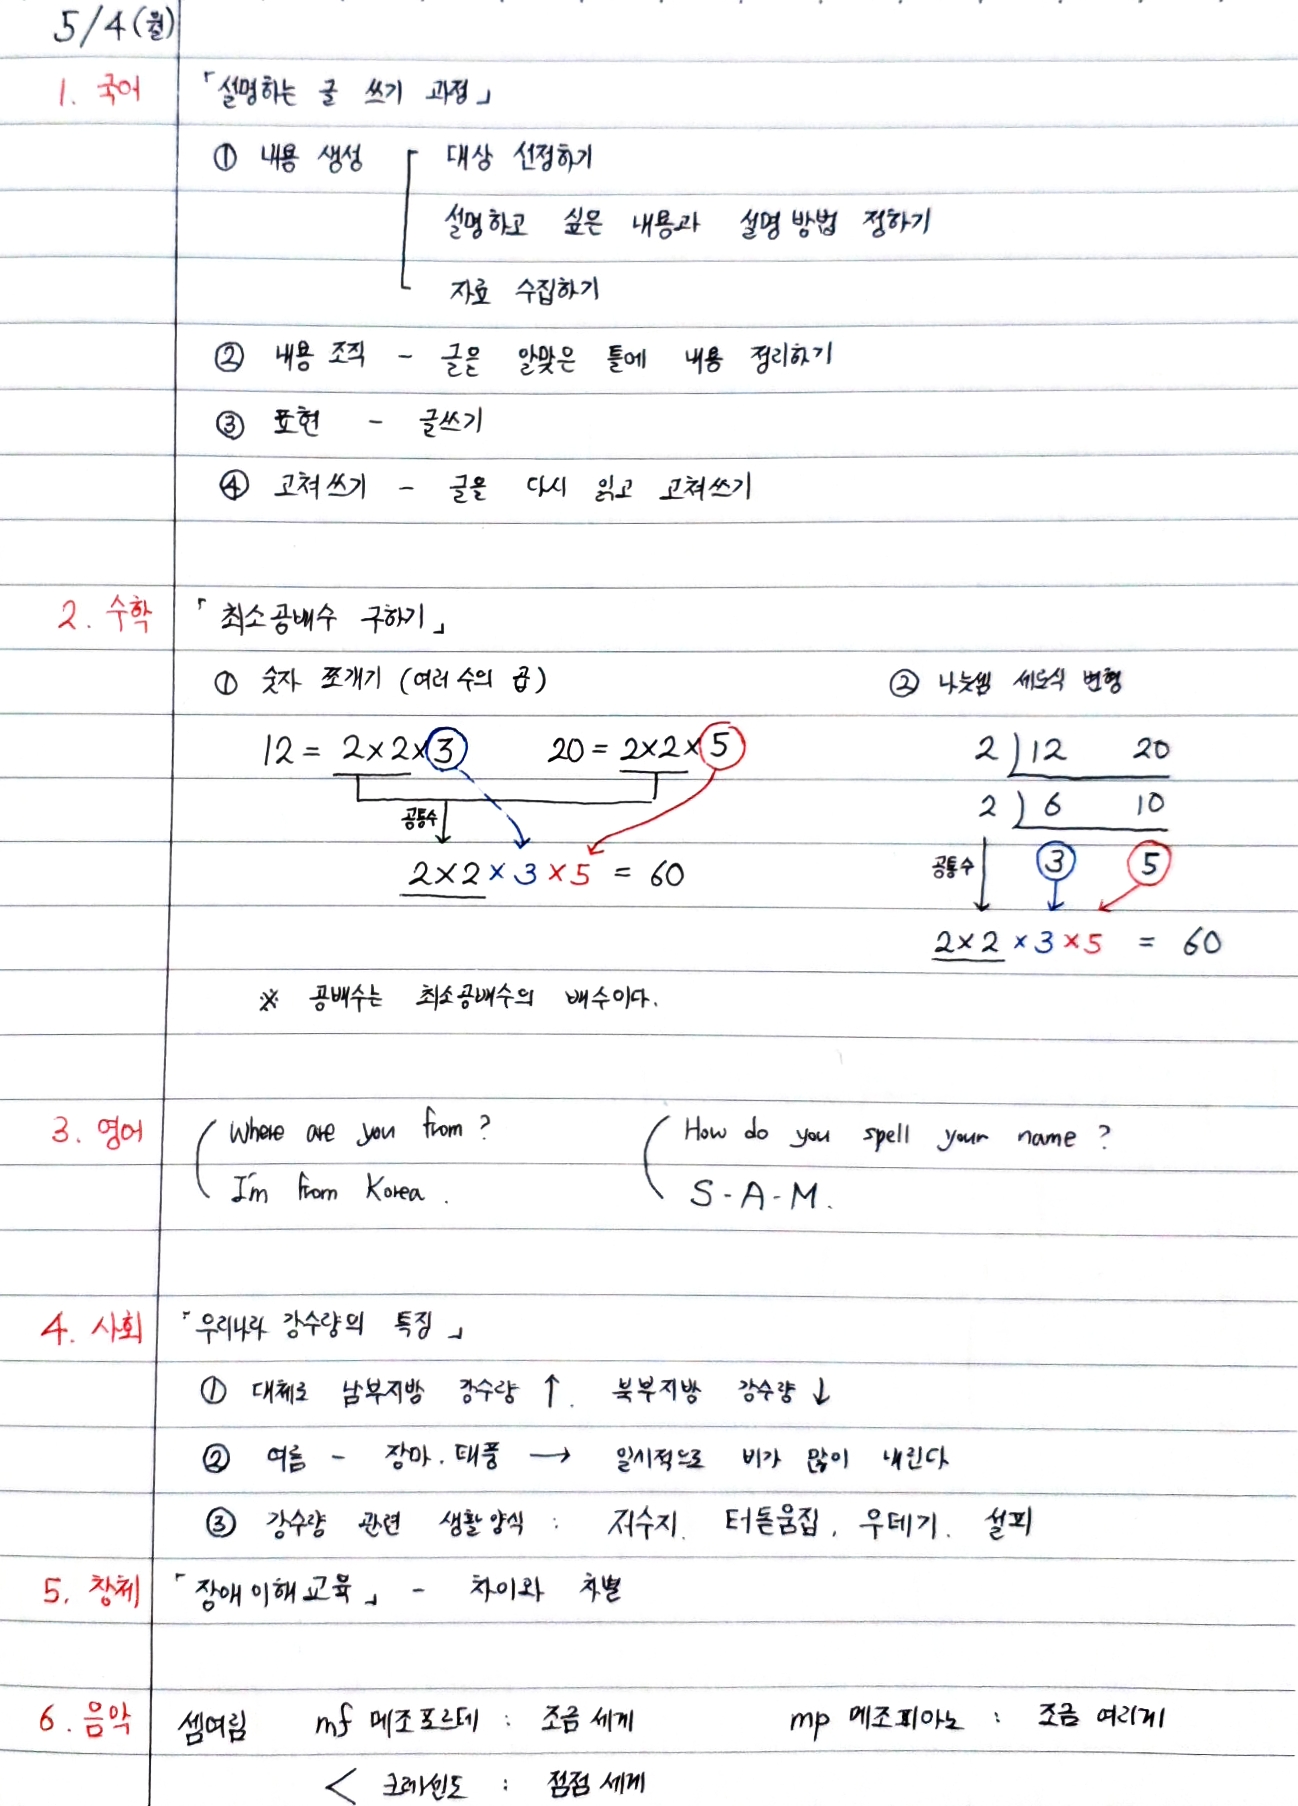 5/4(월)
1. 국어 「설명하는 글 쓰기 과정」
① 내용 생성 대상 선정하기
설명하고 싶은 내용과 설명 방법 정하기
자료 수집하기
② 내용 조직 - 글을 알맞은 틀에 내용 정리하기
③ 표현 - 글쓰기
④ 고쳐쓰기 - 글을 다시 읽고 고쳐쓰기
2. 수학 「최소공배수 구하기」
① 숫자 쪼개기 (여러 수의 곱) ② 나눗셈 세로식 변형
12 = 2×2×3 20 = 2×2×5 2 ) 12 20
2 ) 6 10
공통수
공통수 3 5
2×2×3×5 = 60
2×2×3×5 = 60
※ 공배수는 최소공배수의 배수이다.
3. 영어 Where are you from? How do you spell your name?
I'm from Korea. S-A-M.
4. 사회 「우리나라 강수량의 특징」
① 대체로 남부지방 강수량 ↑. 북부지방 강수량 ↓
② 여름 - 장마. 태풍 → 일시적으로 비가 많이 내린다
③ 강수량 관련 생활 양식 : 저수지. 터돋움집. 우데기. 설피
5. 창체 「장애이해교육」 - 차이와 차별
6. 음악 셈여림 mf 메조포르테 : 조금 세게 mp 메조피아노 : 조금 여리게
< 크레센도 : 점점 세게